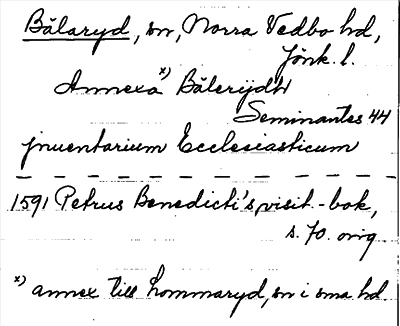 Bälaryd, sn, Norra Vedbo hd,
Jönk. l.
Annexa x) Bälerijdh
Seminantes 44
jnuentarium Ecclesiasticum
1591 Petrus Benedicti's visit.-bok,
s. 70. orig
x) annex till Lommaryd, sn i sma hd.